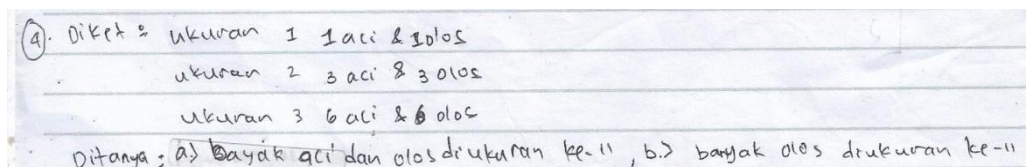 4. Diket : ukuran 1 1 aci & 1 olos
ukuran 2 3 aci & 3 olos
ukuran 3 6 aci & 6 olos
Ditanya : a.) Bayak aci dan olos diukuran ke-11, b.) banyak olos diukuran ke-11